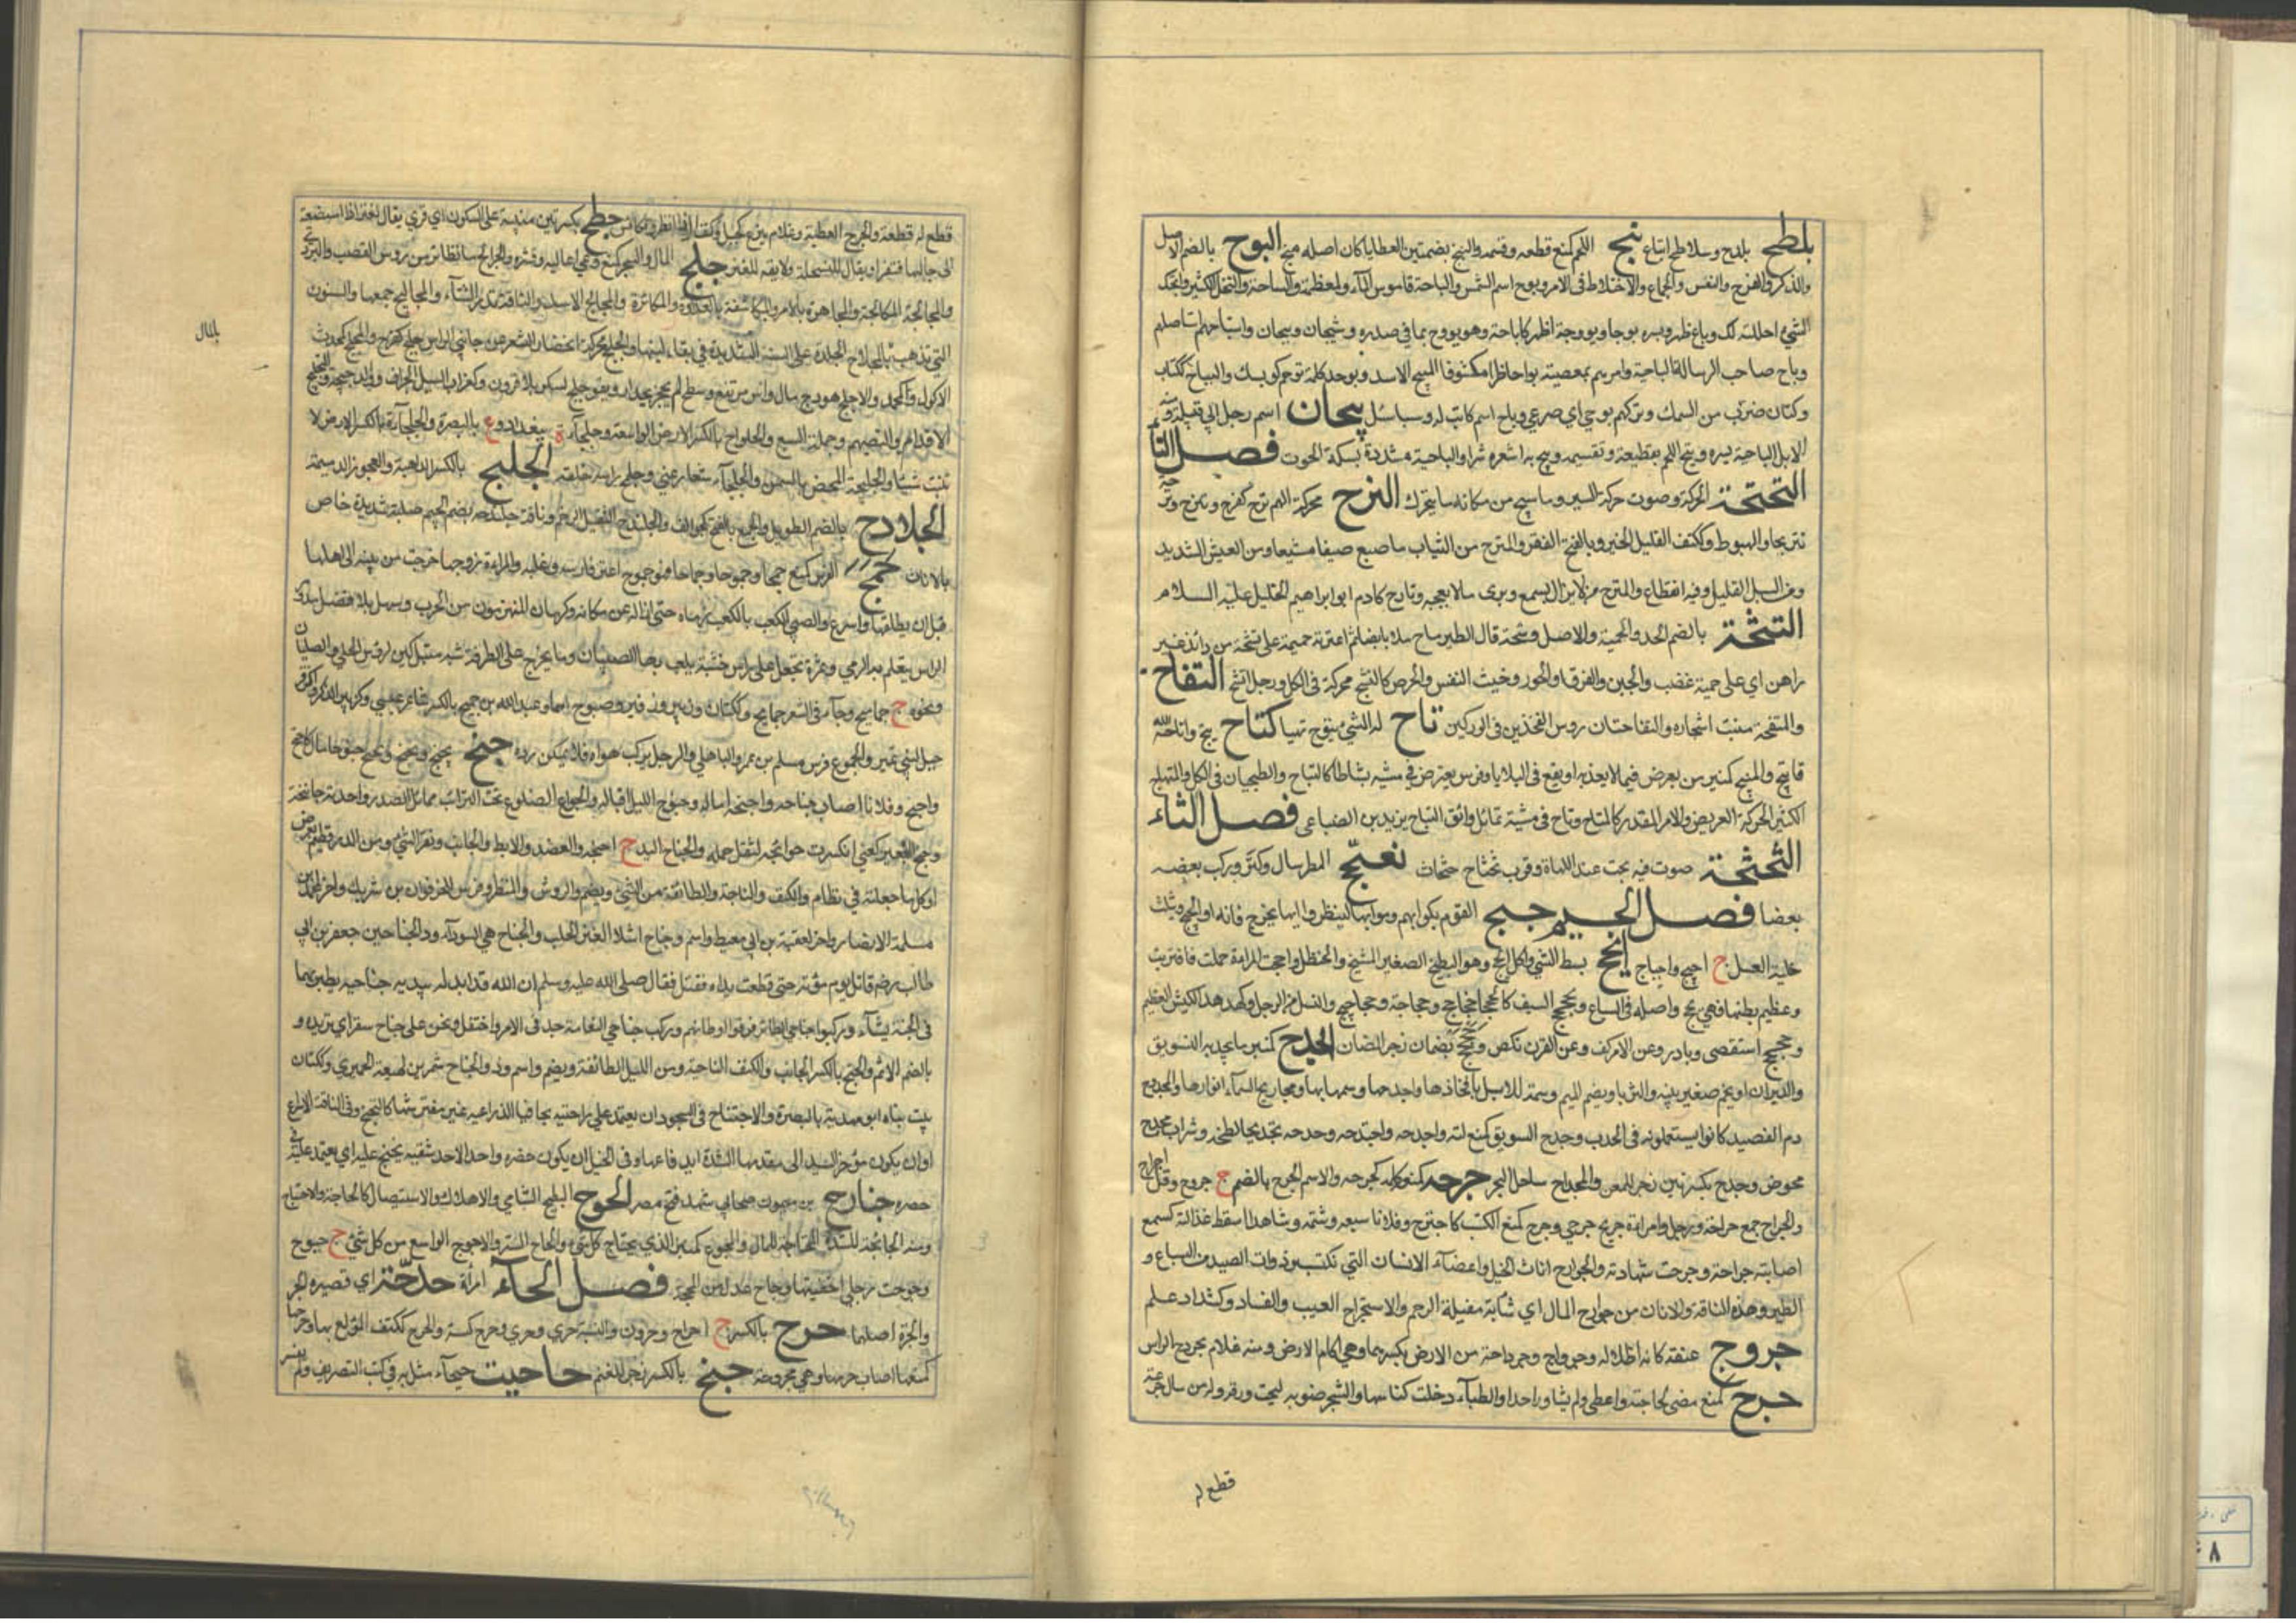 بلطح بلدح وسلاطح اتباع بنح اللحم كمنع قطعه وقسمه والبنح بضمتين العطايا كان اصله منح البوح بالضم الاصل
والذكر والفرج والنفس والجماع والاختلاط فى الامر وبوح اسم الشمس والباحة قاموس الماء ومعظمه والساحة والنخل الكثير وابحتك
الشئ احللته لك وباح ظهر وبسره بوحا وبووحة اظهره كاباحه وهو بووح بما في صدره وبيحان واستباحهم استاصلهم
وباح صاحب الرسالة الباحية وامرهم بمعصية بواحا ظاهرا مكشوفا المبيح الاسد وبوحك كلمة ترحم كويسك والبياح ككتاب
وكتان ضرب من السمك وتركهم بوحى اي صرعي وباح اسم كاتب له وسباسل بيحان اسم رجل ابي قبيلة ومنه
الابل الباحية بيره وبيح اللحم تقطيعه وتقسيمه وبيح به اشعره سرا والباحية مشددة بسكة الحوت فصل التآ
التحتحة الحركة وصوت حركة السير وما يتتحتح من مكانه ما يتحرك الترح محركة الهم ترح كفرح وتترح وترحه
تتريحا والهبوط وككتف القليل الخير وبالفتح الفقر والمترح من الثياب ما صبغ صبغا مشبعا ومن العيش الشديد
ومن السيل القليل وفيه انقطاع والمترح من لا يزال يسمع ويرى ما لا يعجبه وتارح كادم ابو ابراهيم الخليل عليه السلام
التشحة بالضم الجد والحمية والاصل وشحة قال الطير ماح ملا بابضا ثم اعترته حميمة على تشحة من دائد غير
راهن اي على حمية غضب والجبن والفرق والحرد وخبث النفس والحرص كالتشح محركة فى الكل ورجل اتشح التفاح
والمتفحة منبت اشجاره والتفاحتان روس الفخذين فى الوركين تاح له الشئ يتوح تهيا كتاح يتيح واتاحه الله
فاتيح والمتيح كمنبر من يعرض فيما لا يعنيه او يقع فى البلايا وفرس يعترض في مشيه نشاطا كالتياح والتيحان فى الكل والمتياح
الكثير الحركة العريض والامر المقدر كالمتاح وتاح فى مشيه تمايل وابو التياح يزيد بن الضباعى فصل الثاء
الثحثحة صوت فيه بحت عند اللهاة وقرب ثحثاح حثحاث ثعنجح المطر سال وكثر وركب بعضه
بعضا فصل الجيم جبح القوم بكعابهم رموا بها لينظروا ايها يخرج فائزا والجبح ويثلث
خلية العسل ج اجبح واجباح اجح بسط الشي واكل الجح وهو البطيخ الصغير المشنج والحنظل واجحت المراة حملت فاقتربت
وعظم بطنها فهي مجح واصله فى السباع وجحجح السيد كالجحجاح ج جحاجح وجحاجحة وجحاجيح والفسل من الرجل وكهدهد الكبش العظيم
وجحجح استقصى وبادر وعن الامر كف وعن القرن نكص وجحجح بضمان زجر للضان المجدح كمنبر ما يجدح به السويق
والدبران او نجم صغير بينه والثريا ويضم الميم وسمة للابل بافخاذها واجدحها وسمها بها ومجاديح السماء انوارها والمجدوح
دم الفصيد كانوا يستعملونه فى الجدب وجدح السويق كمنع لته واجدحه واجتدحه وجدحه تجديحا لطخه وشراب مجدح
مخوض وجدح بكسرتين زجر للمعز والمجداح ساحل البحر جرحه كمنع كلمه كجرحه والاسم الجرح بالضم ج جروح وقل اجراح
والجراح جمع جراحة ورجل وامراة جريح جرحى وجرح كمنع اكتسب كاجترح وفلانا سبعه وشتمه وشاهدا اسقط عدالته كسمع
اصابته جراحة وجرحت شهادته والجوارح اناث الخيل واعضآء الانسان التي تكتسب وذوات الصيد من السباع و
الطير وهذه الناقة والاتان من جوارح المال اي شابة مقبلة الرحم والاستجراح العيب والفساد وكشداد علم
جروح عنقه كانه اطاله وجرواح وجرداحة من الارض بكسرهما وهي اكام الارض ومنه غلام مجردح الراس
جزح كمنع مضى لحاجته واعطى ولم يشاور احدا والظبآء دخلت كناسها والشجر ضربه ليحت ورقه وله من ماله جزحة
قطع له
قطع له قطعة والجزح العطية وغلام جزح كجبل وكتف اذا نظر وتكايس جطح بكسرتين مبنية على السكون اي قري يقال للعنز اذا استصعبت
الى حالبها فتقر او يقال للسخلة ولا يقه للعنز جلح المال الشجر كمنع رعي اعاليه وقشره والجوالح ما تطاير من رؤس القصب والبردى
والمجالحة المكالحة والمجاهرة بالامر والمكاشفة بالعداوة والمكابرة والمجالح الاسد والناقة تدر فى الشتآء والمجاليح جمعها والسنون
التي تذهب بالمال والجلح محركة انحسار الشعر عن جانبي الراس جلح كفرح والمجلح كمحدث
بالمال
الاكول وكمحمد والاجلح هودج ماله راس مرتفع وسطح لم يحجز بجدار وبقر جلح كسكر بلا قرون وكغراب السيل الجراف والتجليح
الاقدام والتصميم وحملة السبع والجلواح بالكسر الارض الواسعة وجلحآء ة ببغداد وع بالبصرة والجلحآءة بالكسر الارض لا
تنبت شيئا والجليحة المحض بالسمن والجليحآء شعار غني وجلمح راسه حلقه الجلبح بالكسر الداهية والعجوز الدميمة
الجلادح بالضم الطويل والجمع بالفتح كجوالق والجلندح الثقيل الوخم وناقة جلندحة بضم الجيم صلبة شديدة خاص
بالاناث جمح الفرس كمنع جمحا وجموحا وجماحا فهو جموح اعتز فارسه وغلبه والمراة زوجها خرجت من بيته الى اهلها
قبل ان يطلقها واسرع والصبي الكعب بالكعب رماه حتى ازاله عن مكانه وكرمان المنهزمون من الحرب وسهم بلا نصل مدور
الراس يتعلم به الرمي وتمرة تجعل على راس خشبة يلعب بها الصبيان وما يخرج على اطرافه شبه سنبل لين لروس الحلي والصليان
ونحوه ج جماميح وجآء فى الشعر جمامح وككتان وزبير وزفر وصبوح اسمآء وعبدالله بن جمح بالكسر شاعر عبسي وكزبير الذكر وكزفر
جبل لبني نمير والجموح فرس مسلم بن عمرو الباهلي والرجل يركب هواه فلا يمكن رده جنح يجنح ويجنح ويجنح جنوحا مال كاجتنح
واجنح وفلانا اصاب جناحه واجنحه اماله وجنوح الليل اقباله والجوانح الضلوع تحت الترائب مما يلي الصدر واحدته جانحة
وجنح البعير كعني انكسرت جوانحه لثقل حمله والجناح اليد ج اجنحة والعضد والابط والجانب ونفس الشئ ومن الدر نظم يعرض
او كل ما جعلته في نظام والكنف والناحية والطائفة من الشئ ويضم والروشن والمنظر وفرس للحوفزان بن شريك واخر لمحمد بن
مسلمة الانصارى واخر لعقبة بن ابي معيط واسم وجناح اشلا العنز للحلب والجناح هي السوداء وذو الجناحين جعفر بن ابي
طالب رضي قاتل يوم مؤتة حتى قطعت يداه فقتل فقال صلى الله عليه وسلم ان الله قد ابدله بيديه جناحيه يطير بهما
فى الجنة يشآء وركبوا جناحي الطائر فارقوا اوطانهم وركب جناحي النعامة جد فى الامر واحتفل ونحن على جناح سفر اي نريده و
بالضم الاثم والجنح بالكسر الجانب والكنف الناحية ومن الليل الطائفة ويضم واسم وذو الجناح شمر بن لهيعة الحميري وككتان
بيت بناه ابو مهدية بالبصرة والاجتناح فى السجود ان يعتمد على راحتيه مجافيا لذراعيه غير مفترشهما كالتجنح وفى الناقة الاسراع
او ان يكون مؤخرها يسند الى مقدمها لشدة اندفاعها وفى الخيل ان يكون حضره واحدا لاحد شقيه يجتنح عليه اي يعتمده فى
حضره جنارح بن ميمون صحابي شهد فتح مصر الجوح البطيخ الشامي والاهلاك والاستيصال كالجاحة والاجتياح
ومنه الجائحة للشدة المجتاحة للمال والمجوح كمنبر الذي يجتاح كل شئ والجاح الستر والاجوح الواسع من كل شئ ج جوح
وجوحت رجلي احفيتها وجاح عدل عن المحجة فصل الحآء امرأة حدحة اي قصيرة الحر
والحرة اصلهما حرح بالكسر ج احراح وحرون والنسبة حري وحرحي وحرح كسته والحرح ككتف المولع بها وحرحها
كمنعها اصاب حرحها وهي محروحة حنح بالكسر زجر للغنم حاحيت حيحآء مثل به في كتب التصريف ولم يفسر